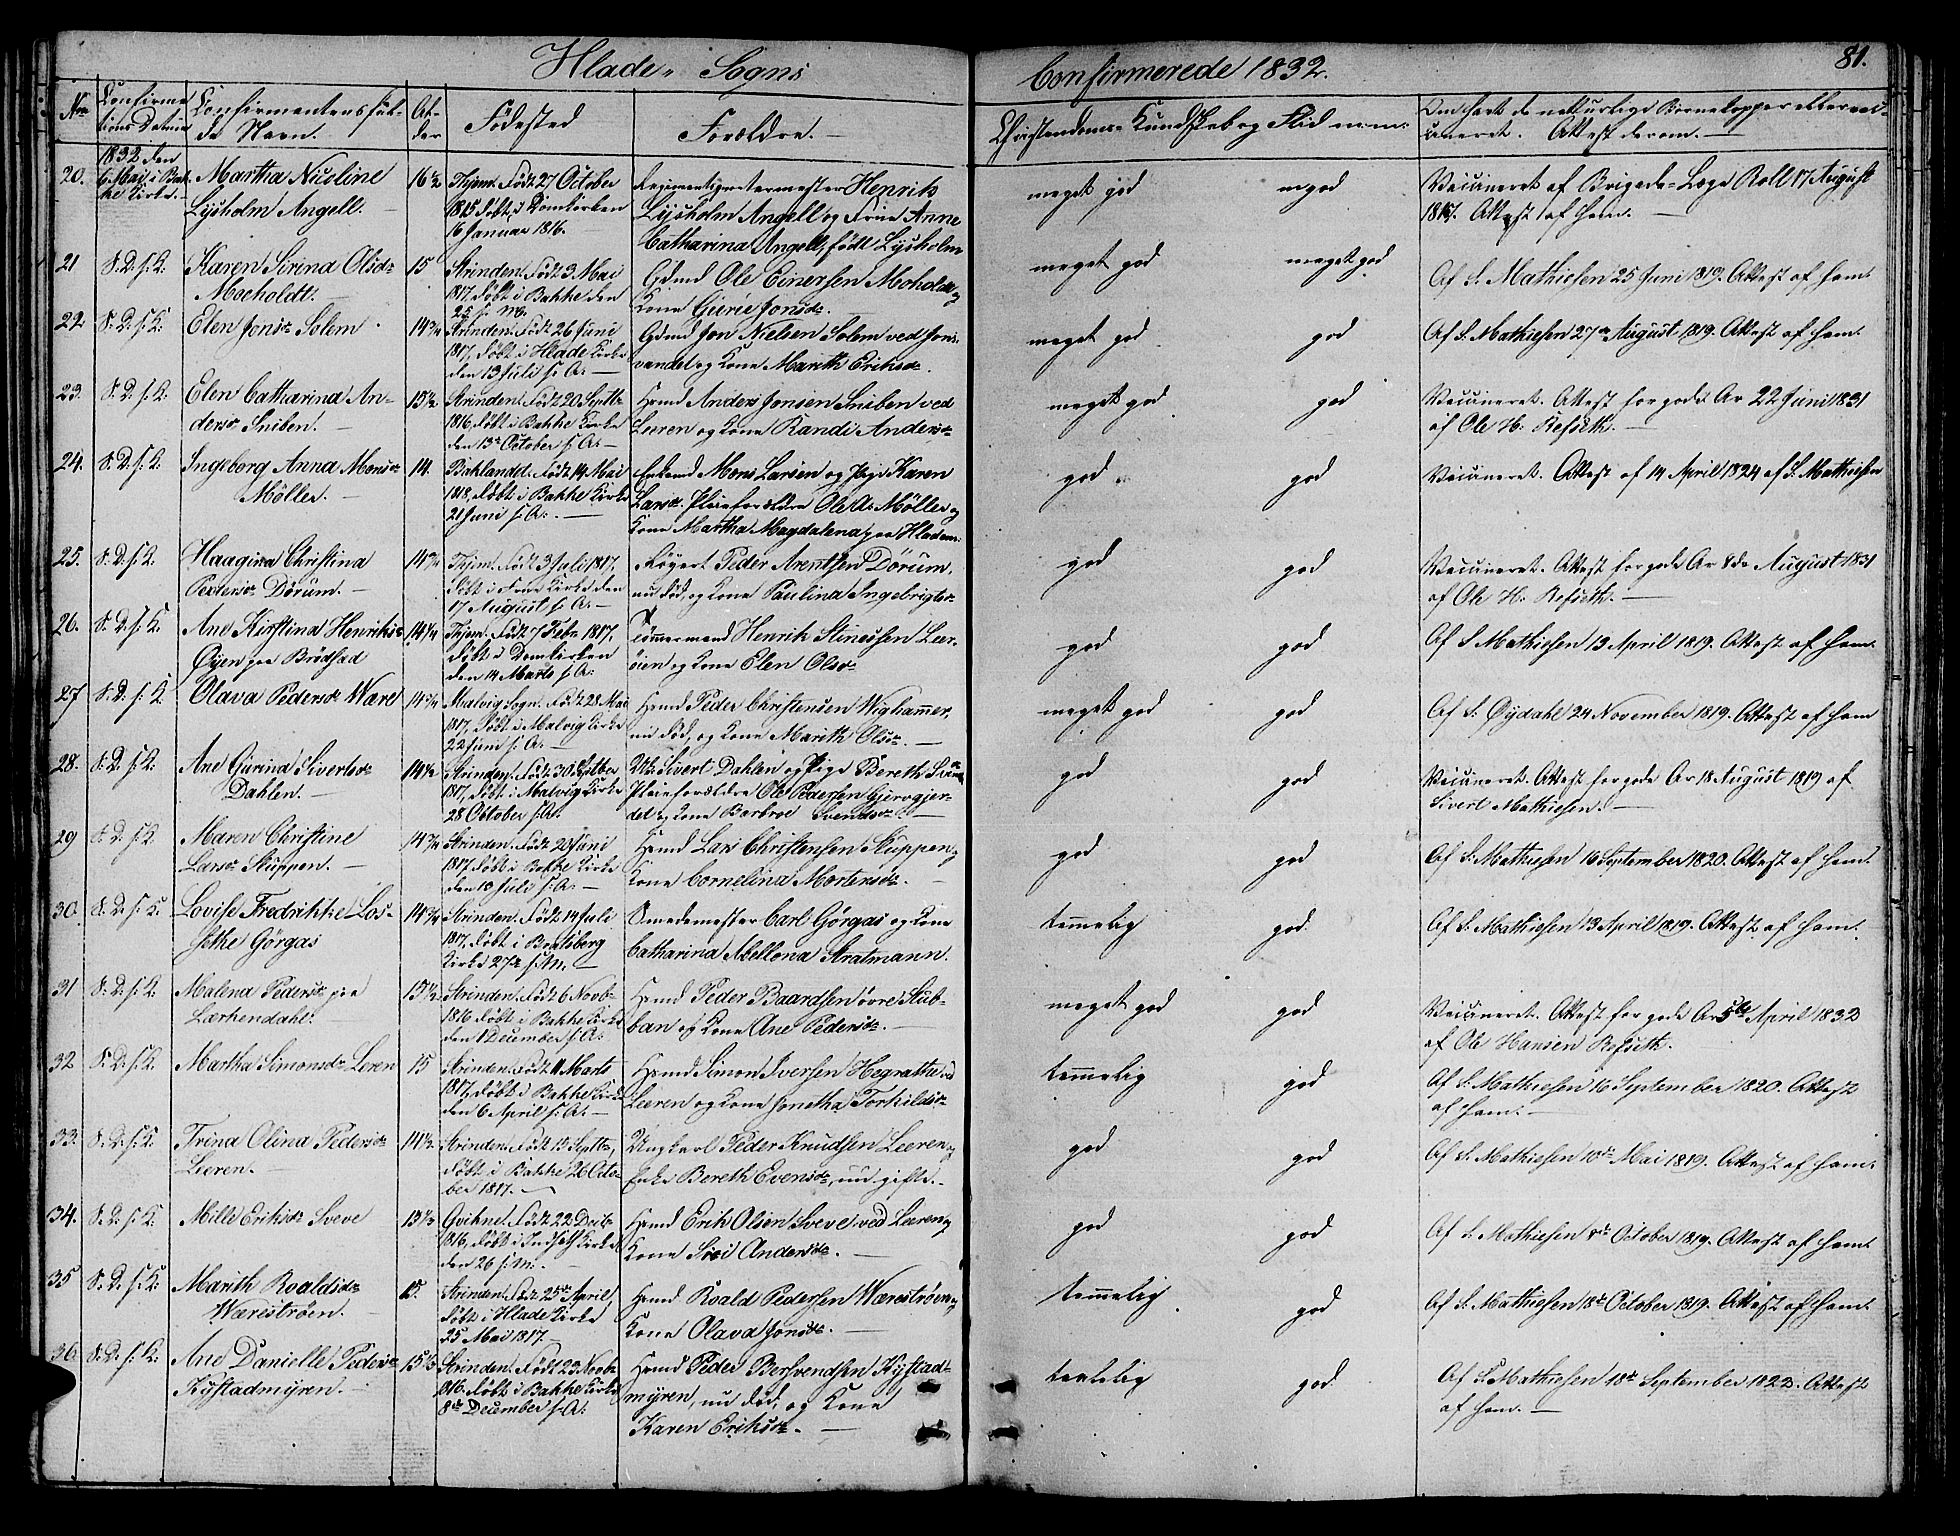 Hlade Sogns
Confirmerede 1832.
81.
No
Confirma-
tions Datum
Confirmentens ful-
de Navn.
Al-
der
Födested
Forældre.
Christendoms-Kundskab og Flid m: m:
Om havt de naturlige Börnekopper eller vac-
cineret. Attest derom.
20.
1832 den
6 Mai i Bak-
ke Kirke.
Martha Nicoline
Lysholm Angell.
16½
Thjem. Födt 27 October
1815 döbt i Domkirken
16 Januar 1816.
Regimentsqvartermester Henrik
Lysholm Angell og Frue Anne
Catharina Angell, födt Lysholm
meget god
mgod
Vaccineret af Brigade-Læge Roll 17 August
1817. Attest af ham.
21
S. D. s. K.
Karen Sirina Olsdr
Moeholdt.
15
Strinden. Födt 3 Mai
1817, döbt i Bakke den
25 s. M.
Gdmd Ole Einersen Moholdt og
Kone Gurie Jonsdr.
meget god
meget god
Af S. Mathiesen 25 Juni 1819. Attest af ham.
22.
S. D. s. K.
Elen Jonsdr Solem
14¾
Strinden. Födt 26 Juni
1817, döbt i Hlade Kirke
den 13 Juli s. A.
Gdmd Jon Nielsen Solem ved Jons-
vandet og Kone Marith Eriksdr.
meget god
god
Af S. Mathiesen 27de August 1819. Attest af ham.
23.
S. D. s. K.
Elen Catharina An-
dersdr Sniben.
15½
Strinden. Födt 20 Septbr
1816, döbt i Bakke Kirke
den 13de October s. A.
Hsmd Anders Jonsen Sniben ved
Leeren og Kone Randi Andersdr
meget god
god
Vaccineret. Attest forgodt Ar 22 Juni 1831
af Ole H. Refseth.
24.
S. D. s. K.
Ingeborg Anna Monsdr
Möller.
14.
Baklandet. Födt 14 Mai
1818, döbt i Bakke Kirke
21 Juni s. A.
Enkemd Mons Larsen og Pige Karen
Larsdr. Pleieforældre Ole A. Möller og
Kone Martha Magdalena paa Hladem:
god
god
Vaccineret. Attest af 14 April 1824 af S. Mathiesen
25.
S. D. s. K.
Haagina Christina
Pedersdr Dörum.
14¾
Thjem. Födt 3 Juli 1817,
döbt i Frue Kirke den
17 August s. A.
Rögert Peder Arentsen Dörum,
nu död, og Kone Paulina Ingebrigtsdr
god
god
Vaccineret. Attest forgodt Ar 8de August 1831
af Ole H. Refseth.
26.
S. D. s. K.
Ane Kirstina Henriksdr
Öyen paa Brödsad
14¼
Thjem. Födt 7 Febr 1817,
döbt i Domkirken
den 14 Marts s. A.
Tömmermand Henrik Stinessen Leer-
öien og Kone Elen Olsdr
god
god
Af S. Mathiesen 13 April 1819. Attest af ham.
27
S. D. s. K.
Olava Pedersdr Ware
14¾
Malvig Sogn. Födt 28 Mai
1817, döbt i Malvig Kirke
22 Juni s. A.
Hsmd Peder Christensen Wighammer,
nu död, og Kone Marith Olsdr.
meget god
god
Af S. Öydahl 24 November 1819. Attest af ham
28.
S. D. s. K.
Ane Gurina Sivertsdr
Dahlen.
14½
Strinden. Födt 30 Septber
1817, döbt i Malvig Kirke
28 October s. A.
Uk: Sivert Dahlen og Pige Bereth
Pleieforældre Ole Pedersen Gjervgjer-
det og Kone Barbroe Svendsdr
god
god
Vaccineret. Attest forgodt Ar 18 August 1819 af
Sivert Mathiesen.
29
S. D. s. K.
Maren Christine
Larsdr Stuppen.
14¾
Strinden. Födt 20 Juni
1817, döbt i Bakke Kirke
den 13 Juli s. A.
Hsmd Lars Christensen Stuppen og
Kone Cornelina Mortensdr.
god
god
Af S. Mathiesen 16 September 1820. Attest af ham.
30.
S. D. s. K.
Lovise Fredrikke Los-
sethe Görgas
14¾
Strinden. Födt 14 Juli
1817, döbt i Bratsberg
Kirke 27de s. M.
Smedemester Carl Görgas og Kone
Catharina Abellona Stratmann.
temmelig
god
Af S. Mathiesen 13 April 1819. Attest af ham.
31
S. D. s. K.
Malena Pedersdr paa
Lærkendahl.
15½
Strinden. Födt 6 Novbr
1816 döbt i Bakke Kirke
den 1 December s. A.
Hsmd Peder Baardsen övre Stub-
ban og Kone Ane Pedersdr.
meget god
god
Vaccineret. Attest for godt Ar 5te April 1832
af Ole Hansen Refseth.
32
S. D. s. K.
Martha Simonsdr Leren
15
Strinden. Födt 11 Marts
1817, döbt i Bakke Kirke
den 6 April s. A.
Hsmd Simon Iversen Hegrathe ved
Leeren og Kone Jonetha Torkildsdr
temmelig
god
Af S. Mathiesen 16 September 1820. Attest
af ham.
33.
S. D. s. K.
Trina Olina Pedersdr
Leeren.
14½
Strinden. Födt 13 Septbr,
döbt i Bakke 26 Octo-
ber 1817.
Ungkarl Peder Knudsen Leeren og
Enke Bereth Evensdr, nu gifte.
god
god
Af S. Mathiesen 10de Mai 1819. Attest af ham.
34.
S. D. s. K.
Mille Eriksdr Sveve
15⅓
Qvikne. Födt 22 Decbr
1816, döbt i Indseth Kirke
den 26 s. M.
Hsmd Erik Olsen Sveve ved Leeren og
Kone Siri Andersdr.
god
god
Af S. Mathiesen 8de October 1819. Attest af ham.
35
S. D. s. K.
Marith Roaldsdr
Wæreströen.
15.
Strinden. Födt 25de April,
döbt i Hlade Kirke
25 Mai 1817.
Hsmd Roald Pedersen Wæreströen og
Kone Olava Jonsdr.
temmelig
god
Af S. Mathiesen 18de October 1819. Attest af ham.
36.
S. D. s. K.
Ane Danielle Pedersdr
Kystadmyren.
15½
Strinden. Födt 23 Novbr
1816. döbt i Bakke Kirke
8de December s. A.
Hsmd Peder Bersvendsen Kystad-
myren, nu död, og Kone
Karen Eriksdr.
taalelig
god
Af S. Mathiesen 18de September 1822. Attest
af ham.